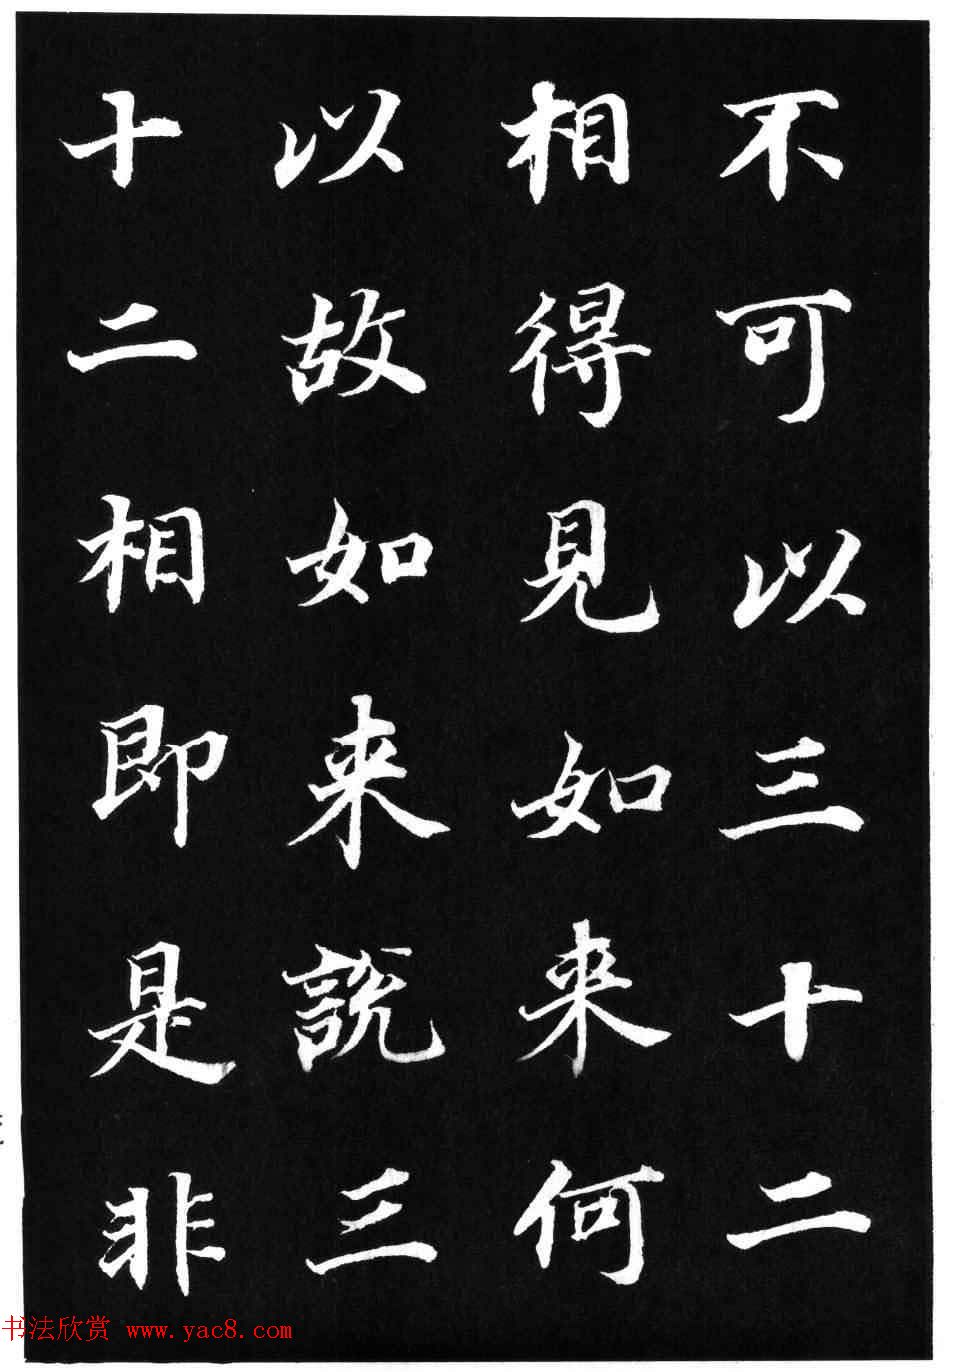 不可以三十二
相得見如来何
以故如来説三
十二相即是非
书法欣赏 www.yac8.com